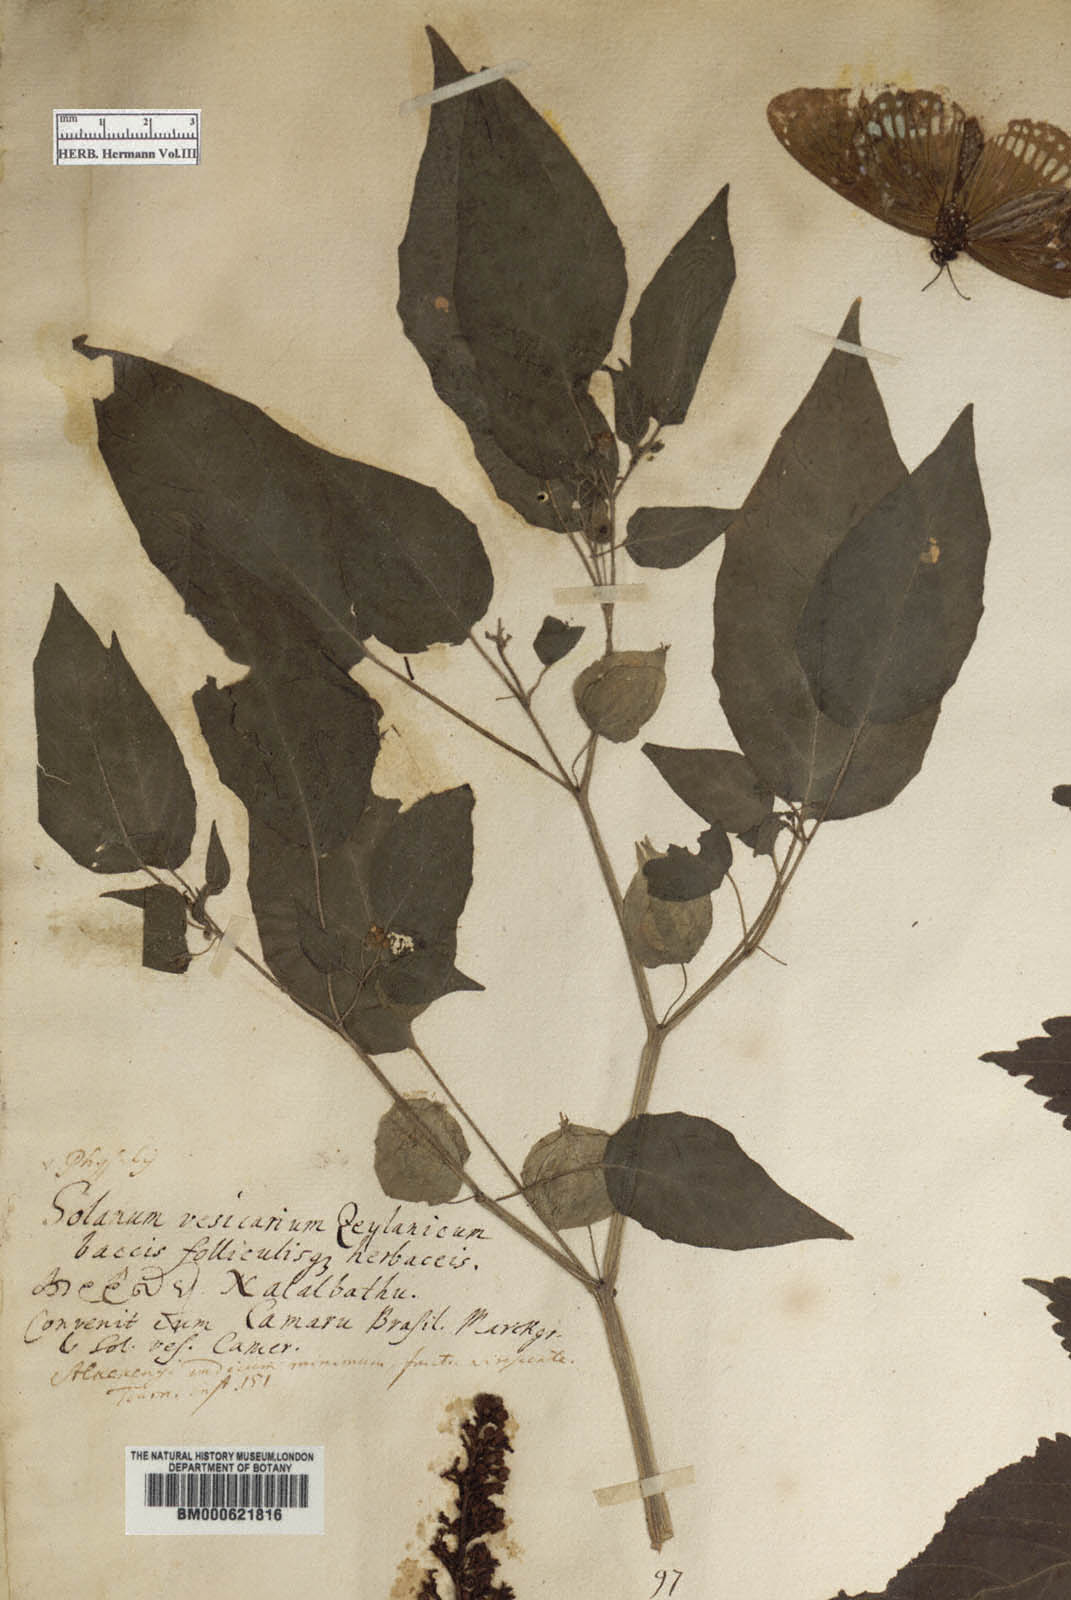 mm 1 2 3
HERB. Hermann Vol.III
Solanum vesicarium Zeylanicum
baccis folliculisq3 herbaceis.
Xatalbathu.
Convenit cum Camaru Brasil. Marckgr.
Sol. ves. Camer.
indicum minimum, fructu virescente.
Tourn. inst. 151
THE NATURAL HISTORY MUSEUM,LONDON
DEPARTMENT OF BOTANY
BM000621816
97